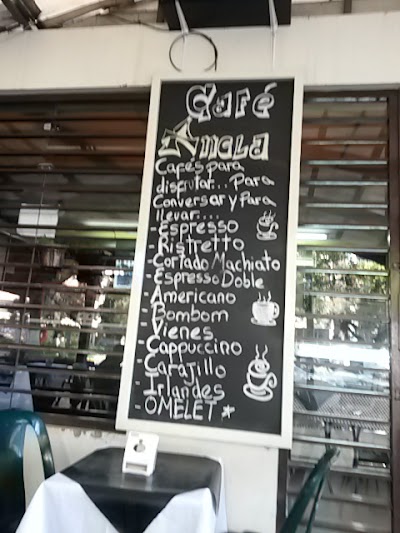 Café
Amola
Cafés para
disfrutar...Para
Conversar y Para
llevar....
-Espresso
-Ristretto
-Cortado Machiato
-Espresso Doble
-Americano
-Bombom
-Vienes
-Cappuccino
-Carajillo
-Irlandes
-OMELET*